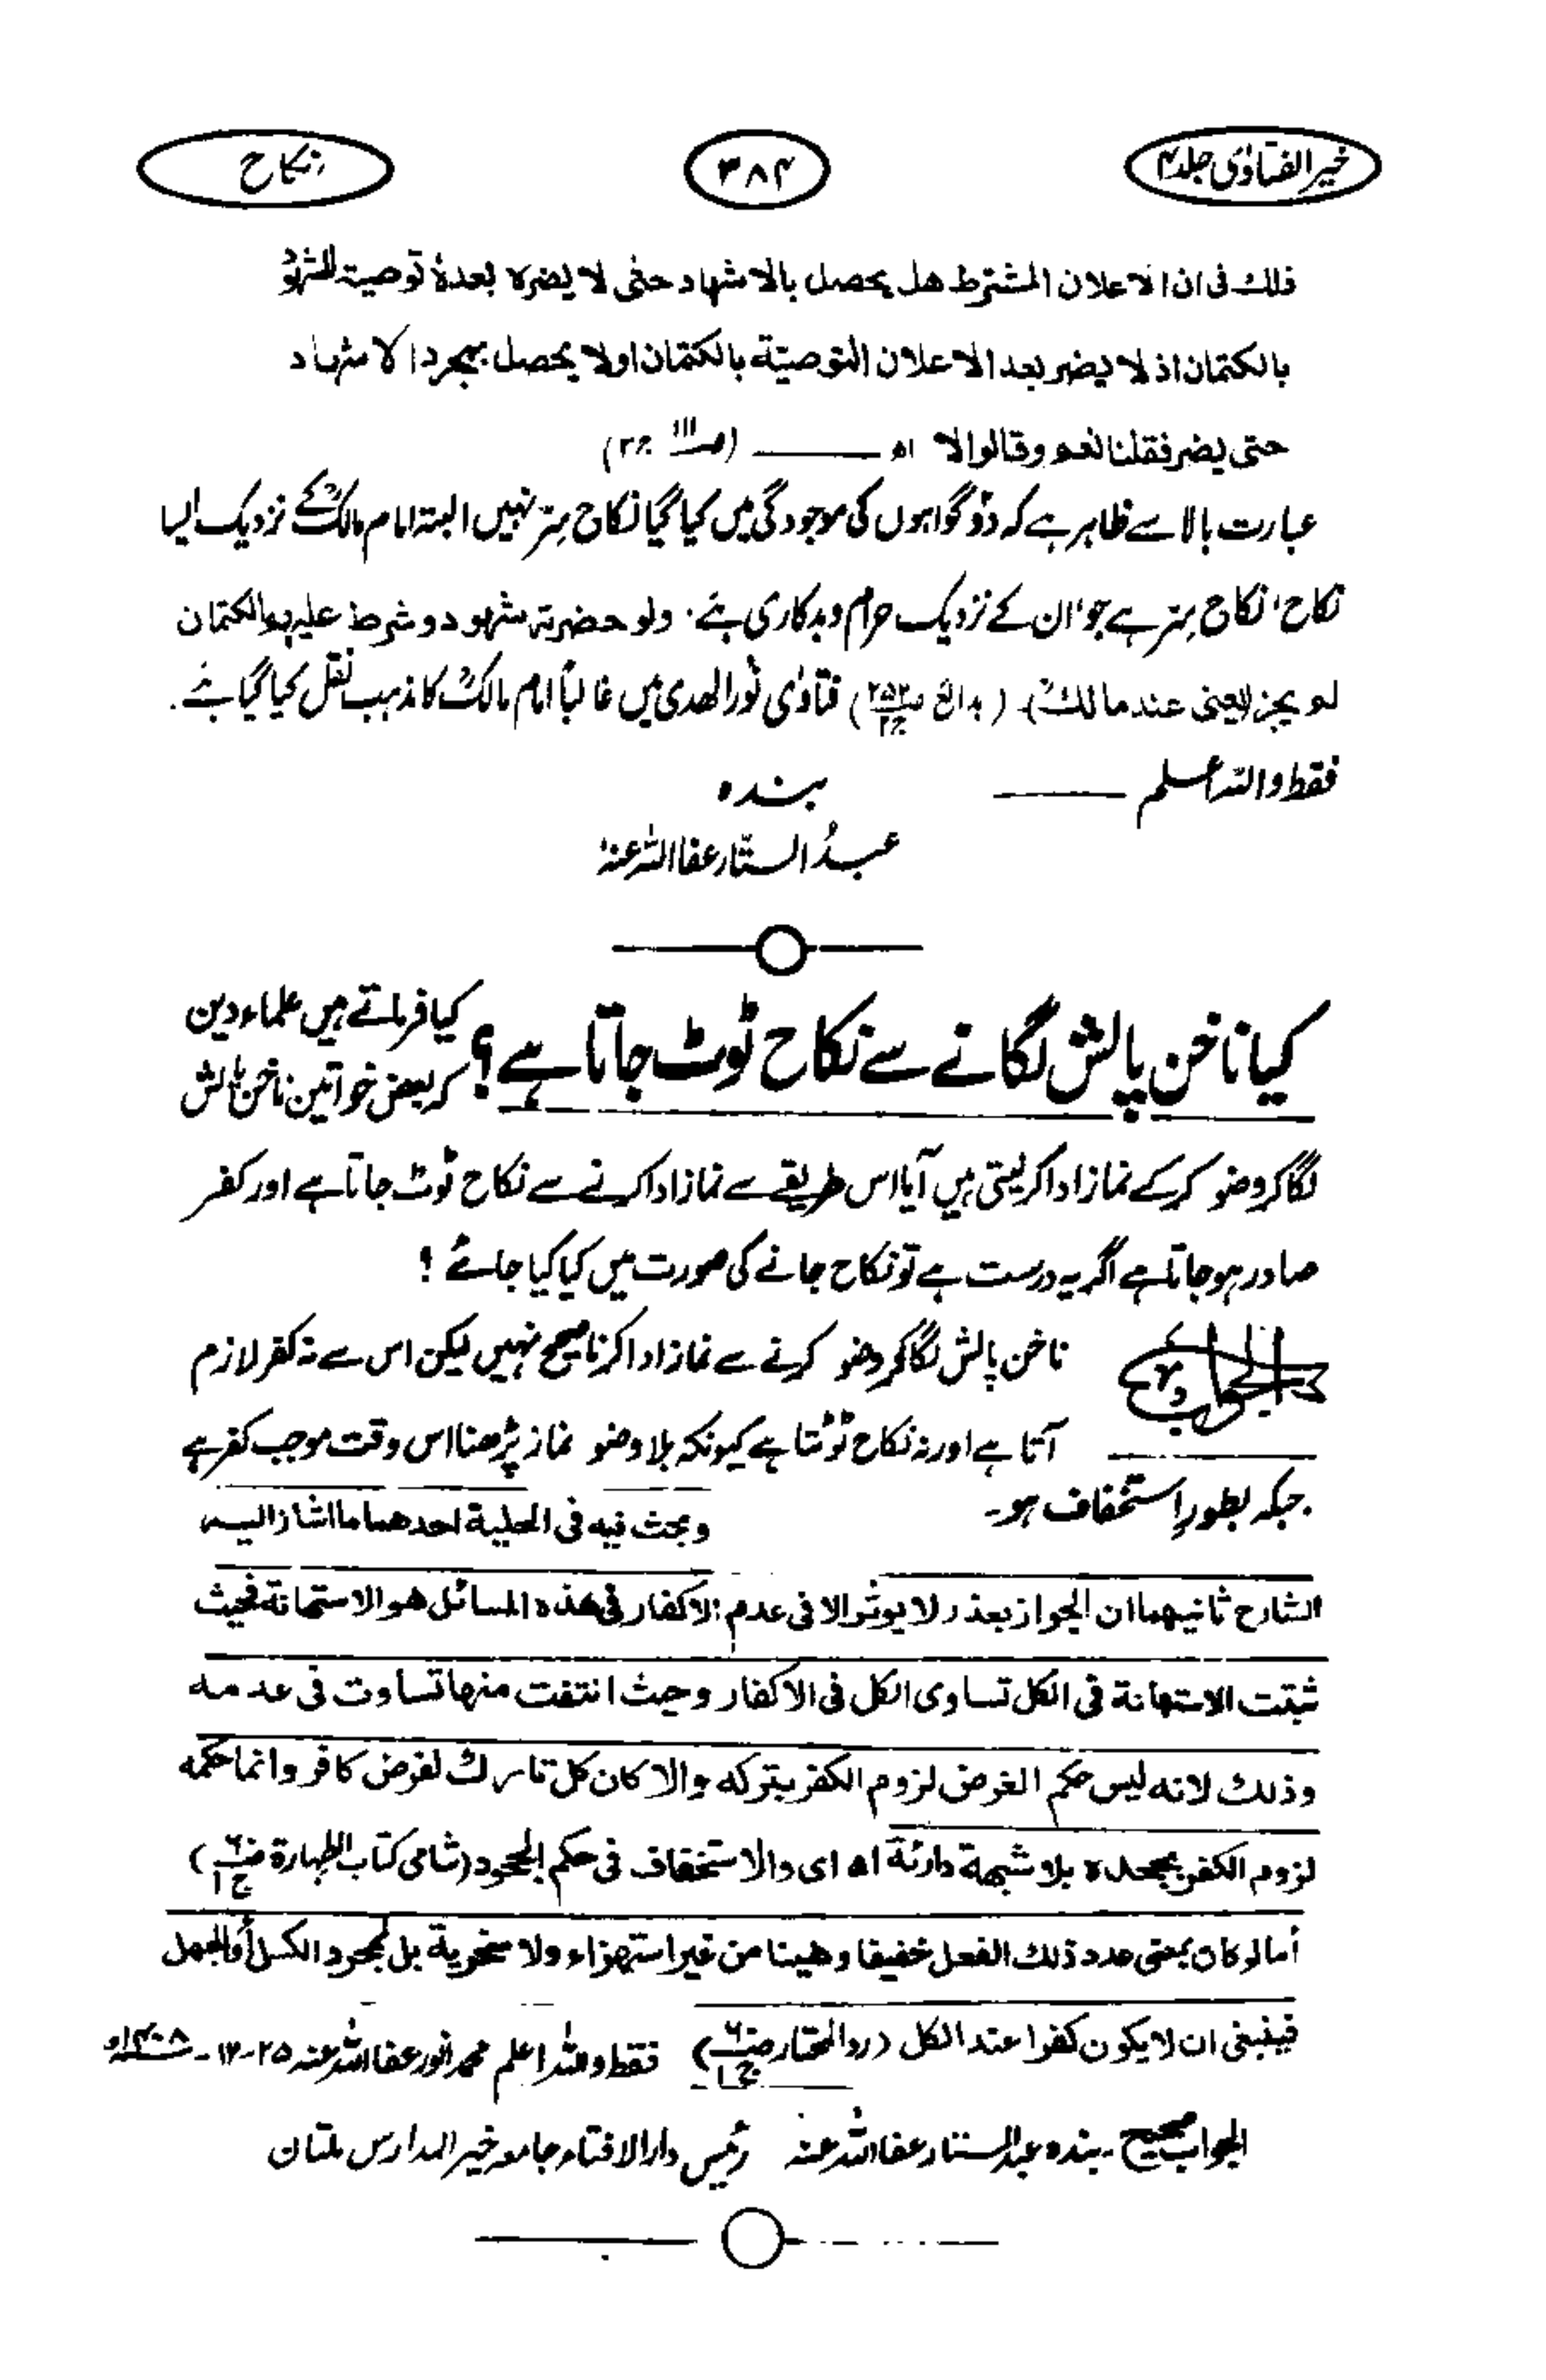 خیر الفتاوٰی جلد ۴
۳۸۴
نکاح
ذلك فی ان الاعلان المشترط هل یحصل بالاشهاد حتی لا یضره بعدهٗ توصیة للشهود
بالکتمان اذ لا یضر بعد الاعلان التوصیة بالکتمان اولا یحصل بمجرد الاشهاد
حتی یضر فقلنا نعم وقالوا لا اه ——— (ص۱۱۱ ج۳)
عبارت بالا سے ظاہر ہے کہ دو گواہوں کی موجودگی میں کیا گیا نکاح سِرّ نہیں البتہ امام مالکؒ کے نزدیک ایسا
نکاح، نکاح سِرّ ہے جو ان کے نزدیک حرام و بدکاری ہے۔ ولو حضرته شهود و شرط علیهم الکتمان
لم یجز (یعنی عند مالكؒ)۔ (بدائع ص۲۵۲ ج۲) فتاوٰی نور الھدی میں غالباً امام مالکؒ کا مذہب نقل کیا گیا ہے۔
فقط واللہ اعلم ———
بندہ
عبدُ الستّار عفا اللہ عنہٗ
کیا ناخن پالش لگانے سے نکاح ٹوٹ جاتا ہے؟
کیا فرماتے ہیں علماء دین
کہ بعض خواتین ناخن پالش
لگا کر وضو کر کے نماز ادا کر لیتی ہیں آیا اس طریقے سے نماز ادا کرنے سے نکاح ٹوٹ جاتا ہے اور کفر
صادر ہو جاتا ہے اگر یہ درست ہے تو نکاح جانے کی صورت میں کیا کیا جائے؟
الجواب
ناخن پالش لگا کر وضو کرنے سے نماز ادا کرنا صحیح نہیں لیکن اس سے نہ کفر لازم
آتا ہے اور نہ نکاح ٹوٹتا ہے کیونکہ بلا وضو نماز پڑھنا اس وقت موجب کفر ہے
جبکہ بطورِ استخفاف ہو۔
وبحث فیه فی الحلیة احدهما ما اشار الیه
الشارح ثانیهما ان الجواز بعذر لا یوثر الا فی عدم الاکفار فی هذه المسائل هو الاستهانة فحیث
ثبتت الاستهانة فی الکل تساوی الکل فی الاکفار وحیث انتفت منها تساوت فی عدمه
وذلك لانه لیس حکم الفرض لزوم الکفر بترکه والا کان کل تارك لفرض کافر وانما حکمه
لزوم الکفر بجحده بلا شبهة دارئة اه ای والاستخفاف فی حکم الجحود (شامی کتاب الطہارۃ ص۶۰ ج۱)
أما لو کان بمعنی عدد ذلك الفعل خفیفا وهینا من غیر استهزاء ولا سخریة بل لمجرد الکسل أو الجهل
فینبغی ان لا یکون کفرا عند الکل (رد المحتار ص۶۰ ج۱) فقط واللہ اعلم محمد انور عفا اللہ عنہ ۲۵-۱۲-۱۴۰۸ھ
الجواب صحیح ۔ بندہ عبد الستار عفا اللہ عنہ رئیس دار الافتاء جامعہ خیر المدارس ملتان